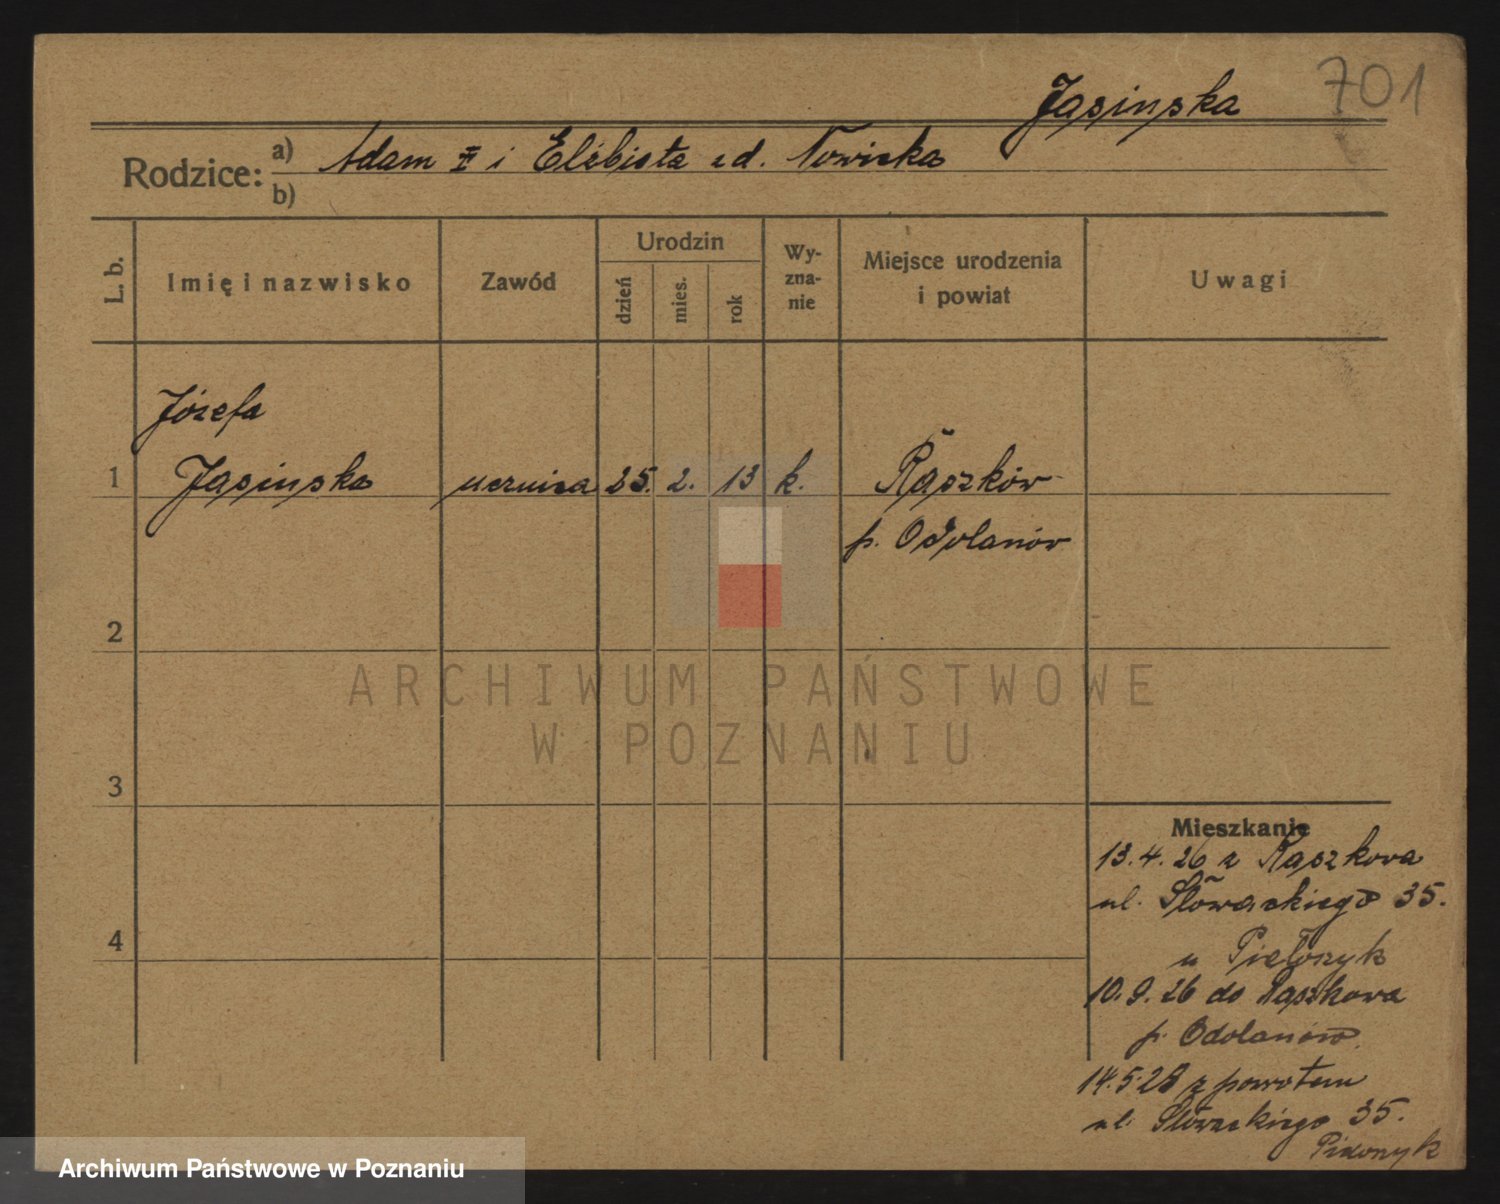 Jasinska 701
Rodzice: a) Adam i Elżbieta z d. Nowicka
b)
L. b.
Imię i nazwisko
Zawód
Urodzin
dzień
mies.
rok
Wy-
zna-
nie
Miejsce urodzenia
i powiat
Uwagi
Józefa
1 Jasinska ucznica 25. 2. 13 k. Raszków
p. Odolanów
2
3
4
Mieszkanie
13.4.26 z Raszkowa
ul. Słowackiego 35.
u
10.9.26 do Raszkowa
p. Odolanów
14.5.28 z powrotem
ul. Słowackiego 35.
ARCHIWUM PAŃSTWOWE
W POZNANIU
Archiwum Państwowe w Poznaniu